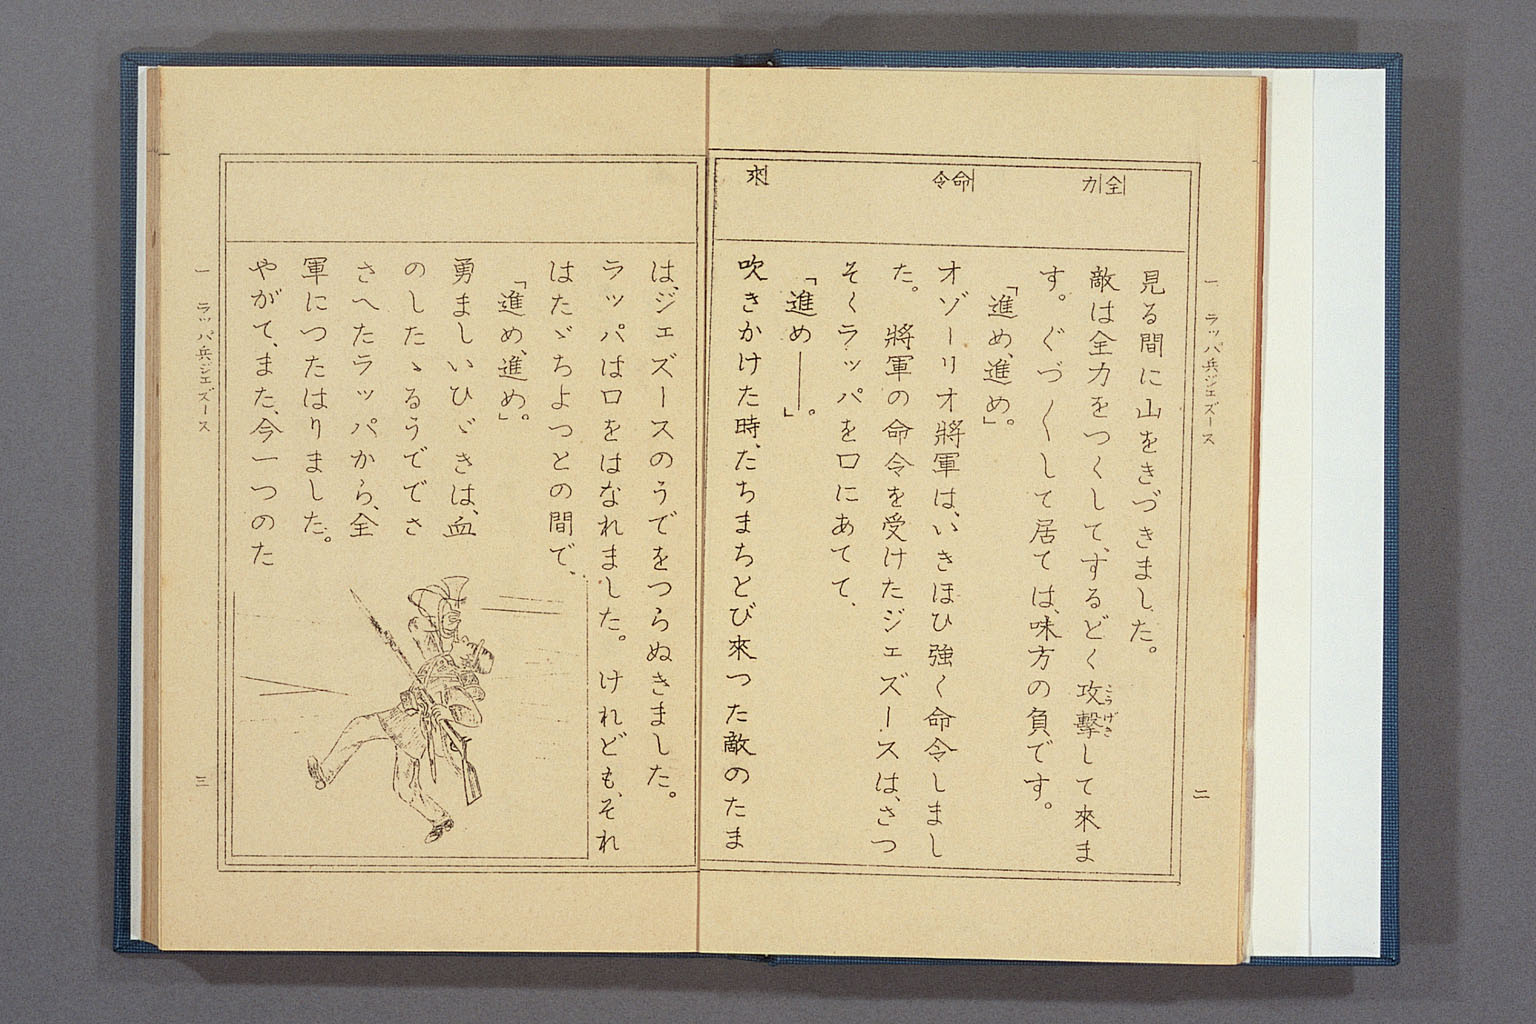 一 ラッパ兵ジェズース
二
全力
命令
來
見る間に山をきづきました。
敵は全力をつくして、するどく攻撃して來ま
こうげき
す。ぐづ〱して居ては、味方の負です。
「進め、進め。」
オゾーリオ將軍は、いきほひ強く命令しまし
た。 將軍の命令を受けたジェズースは、さつ
そくラッパを口にあてて、
「進め――。」
吹きかけた時、たちまちとび來つた敵のたま
は、ジェズースのうでをつらぬきました。
ラッパは口をはなれました。 けれども、それ
はたゞちよつとの間で、
「進め、進め。」
勇ましいひゞきは、血
のしたゝるうででさ
さへたラッパから、全
軍につたはりました。
やがて、また、今一つのた
一 ラッパ兵ジェズース
三